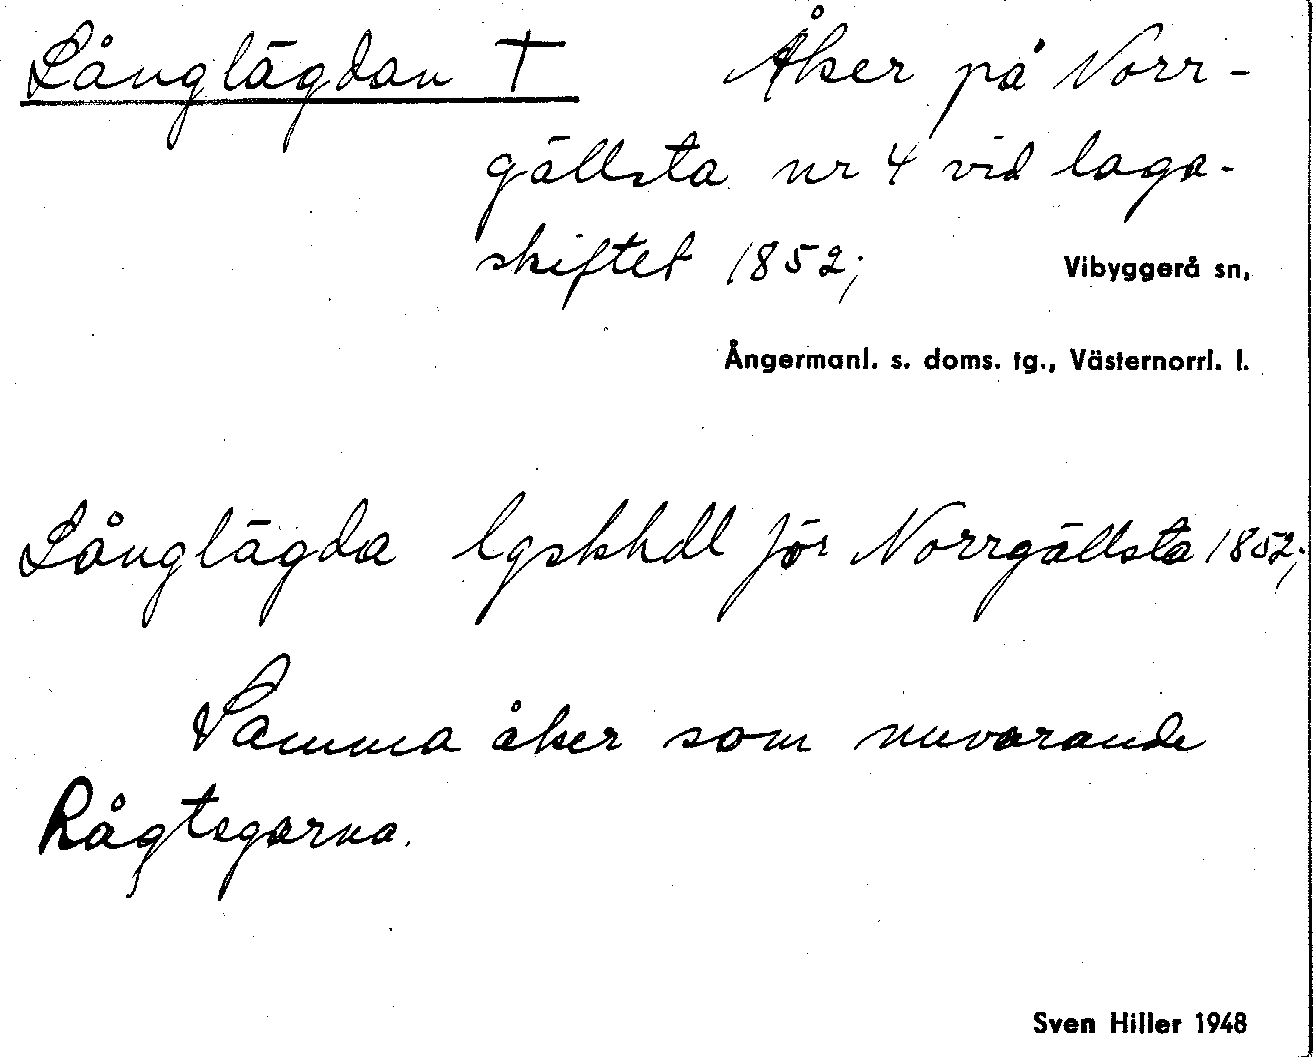 Långlägdan † Åker på Norr-
gällsta nr 4 vid laga-
skiftet 1852;
Vibyggerå sn,
Ångermanl. s. doms. tg., Västernorrl. l.
Långlägda lgskhdl för Norrgällsta 1852;
Samma åker som nuvarande
Rågtegarna.
Sven Hiller 1948